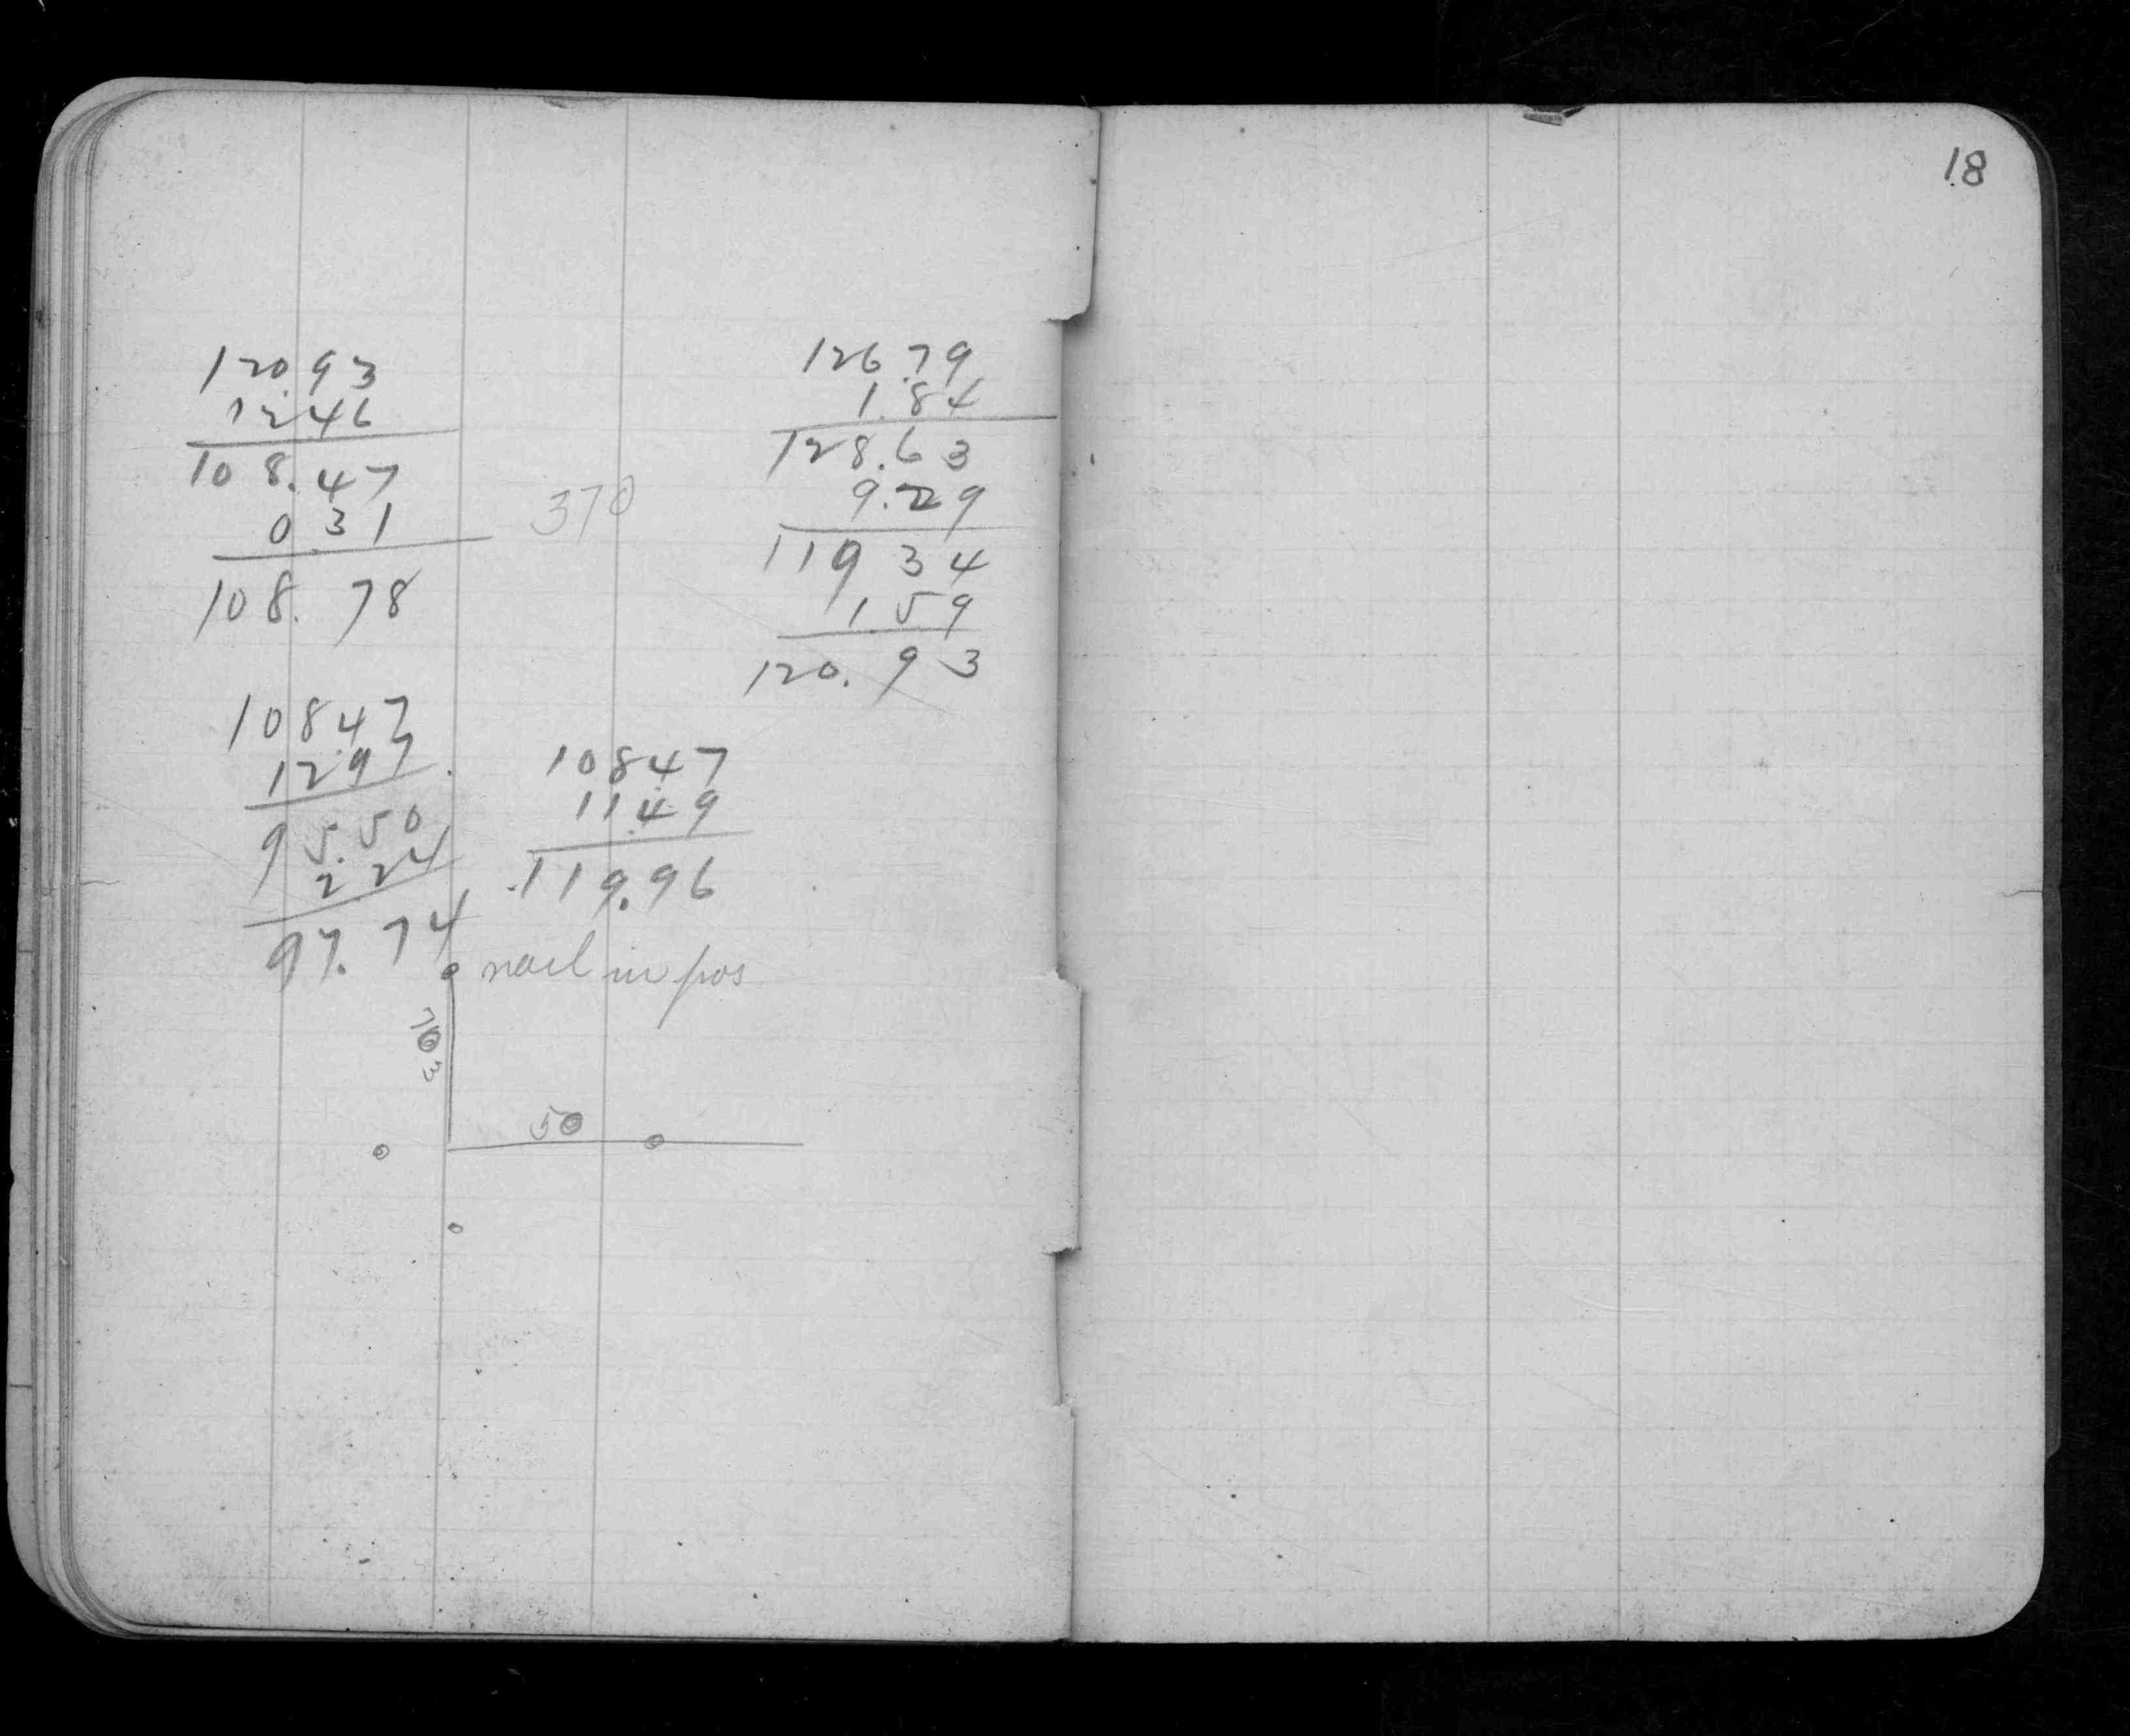 18
120.93
12.46
108.47
0.31
108.78
370
126.79
1.84
128.63
9.29
119 34
1.59
120.93
108.47
12.97
95.50
2 24
97.74
108.47
11.49
119.96
nail in pos
703
50